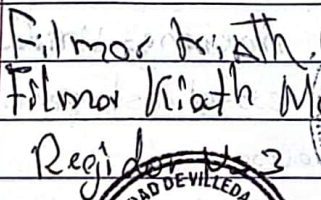 Filmor Kiath
Filmor Kiath M
Regidor No 3
DAD DE VILLEDA